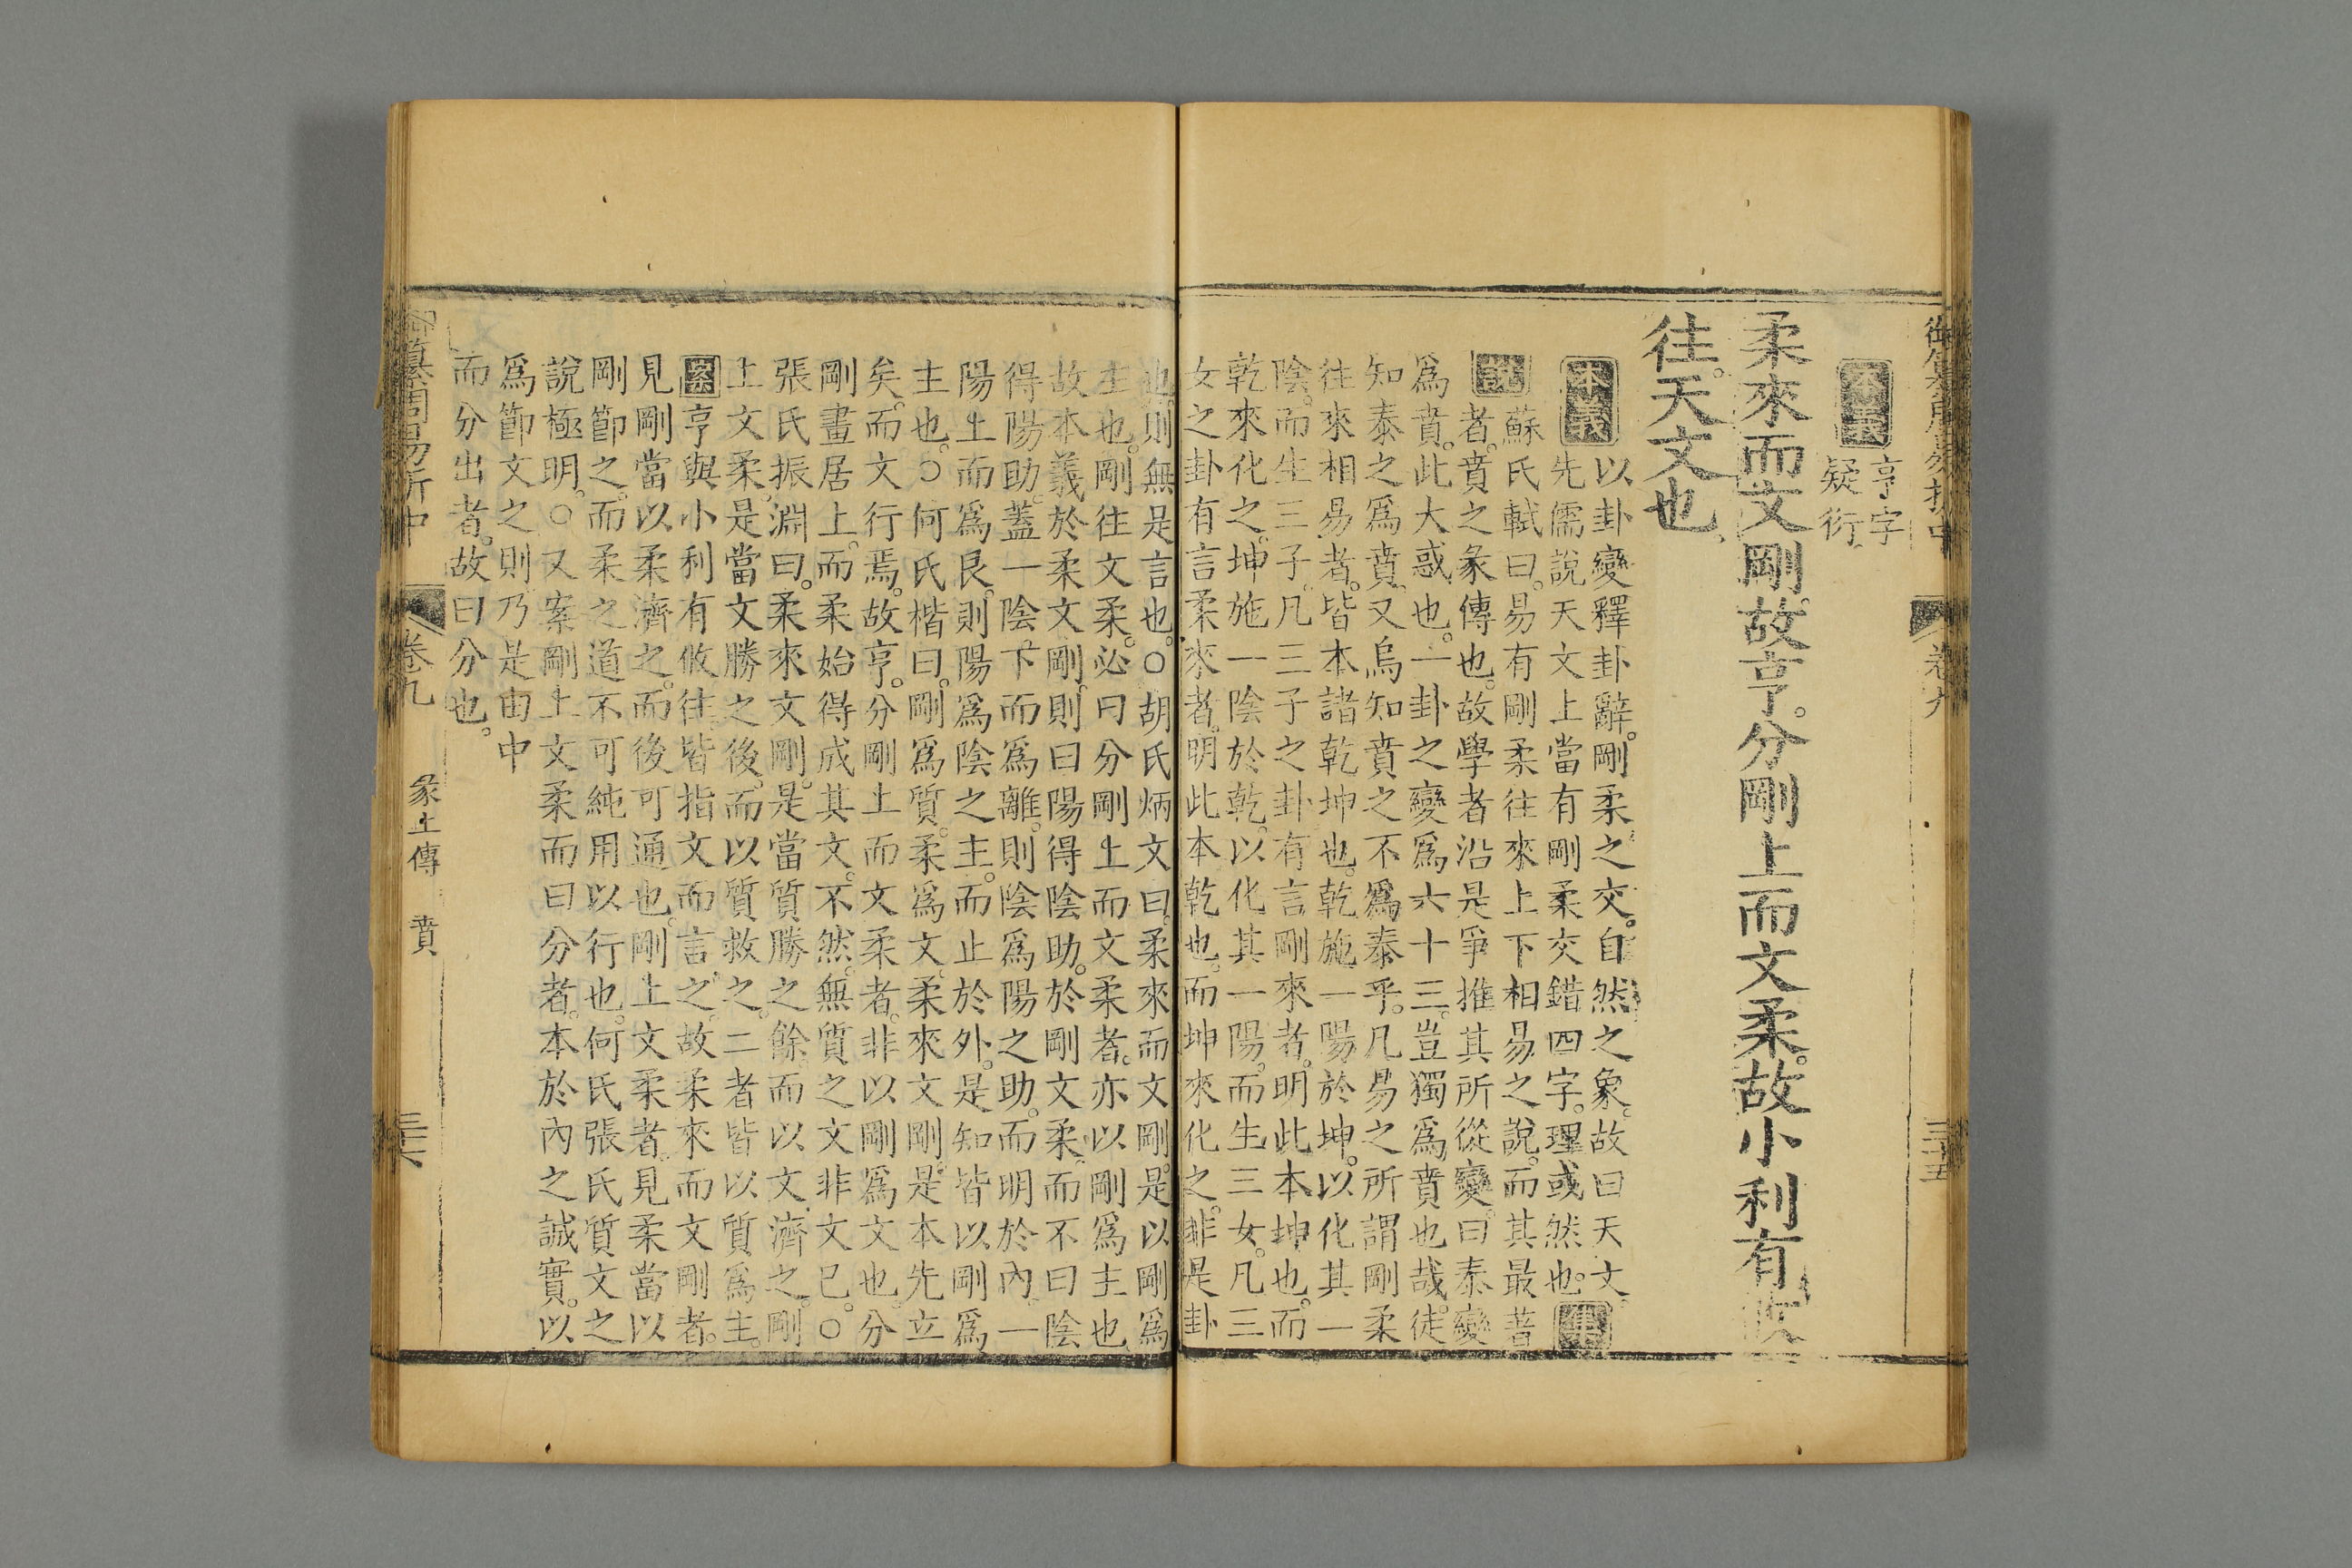 本義
亨字
疑衍
柔來而文剛故亨。分剛上而文柔。故小利有攸
往。天文也。
本義 以卦變釋卦辭。剛柔之交。自然之象。故曰天文。
先儒說天文上當有剛柔交錯四字。理或然也。集
說 蘇氏軾曰。易有剛柔往來上下相易之說。而其最著
者。賁之彖傳也。故學者沿是爭推其所從變。曰泰變
爲賁。此大惑也。一卦之變爲六十三。豈獨爲賁也哉。徒
知泰之爲賁。又烏知賁之不爲泰乎。凡易之所謂剛柔
往來相易者。皆本諸乾坤也。乾施一陽於坤。以化其一
陰。而生三子。凡三子之卦有言剛來者。明此本坤也。而
乾來化之。坤施一陰於乾。以化其一陽。而生三女。凡三
女之卦有言柔來者。明此本乾也。而坤來化之。非是卦
也。則無是言也。○胡氏炳文曰。柔來而文剛。是以剛爲
主也。剛往文柔。必曰分剛上而文柔者。亦以剛爲主也
故本義於柔文剛。則曰陽得陰助。於剛文柔。而不曰陰
得陽助。蓋一陰下而爲離。則陰爲陽之助。而明於內。一
陽上而爲艮。則陽爲陰之主。而止於外。是知皆以剛爲
主也。○何氏楷曰。剛爲質。柔爲文。柔來文剛。是本先立
矣。而文行焉。故亨。分剛上而文柔者。非以剛爲文也。分
剛畫居上。而柔始得成其文。不然。無質之文非文已。○
張氏振淵曰。柔來文剛。是當質勝之餘。而以文濟之。剛
上文柔。是當文勝之後。而以質救之。二者皆以質爲主。
案 亨與小利有攸往。皆指文而言之。故柔來而文剛者。
見剛當以柔濟之。而後可通也。剛上文柔者。見柔當以
剛節之。而柔之道不可純用以行也。何氏張氏質文之
說極明。○又案剛上文柔而曰分者。本於內之誠實。以
爲節文之則乃是由中
而分出者。故曰分也。
御纂周易折中
卷九
彖上傳
賁